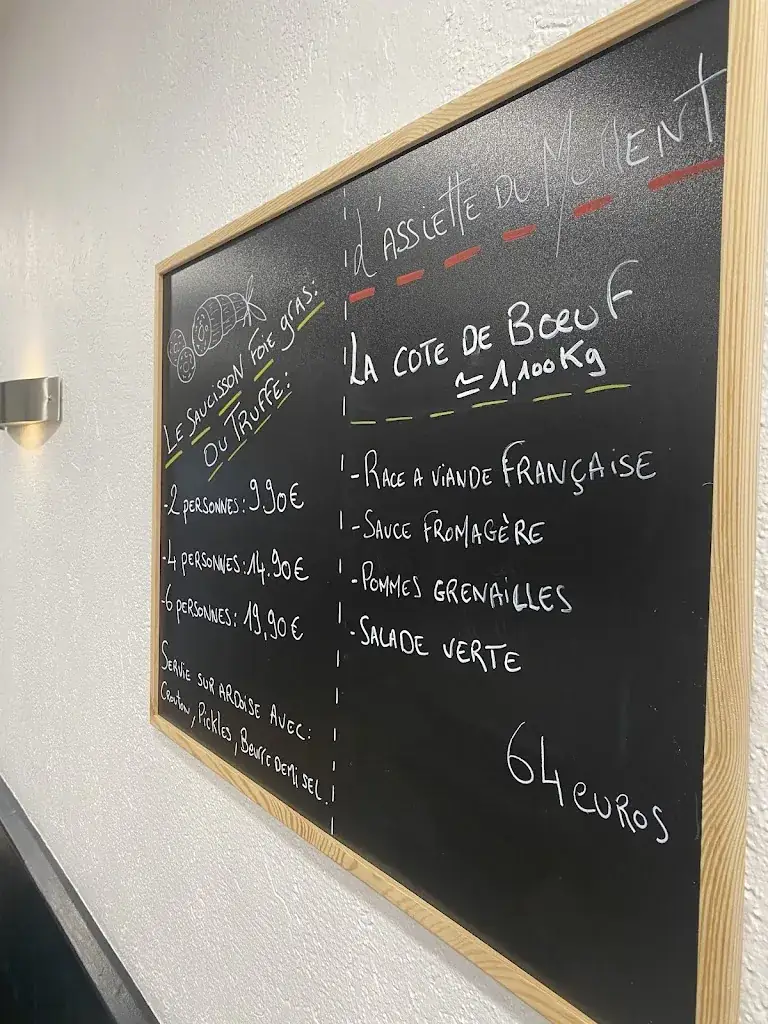 Le Saucisson Foie gras:
ou Truffe:
-2 personnes: 9.90€
-4 personnes: 14.90€
-6 personnes: 19,90€
Servie sur ardoise avec:
Crouton, Pickles, Beurre demi sel.
L'assiette du Moment
La cote de Bœuf
≃ 1,100Kg
-Race a viande Française
-Sauce fromagère
-Pommes grenailles
-Salade verte
64 euros